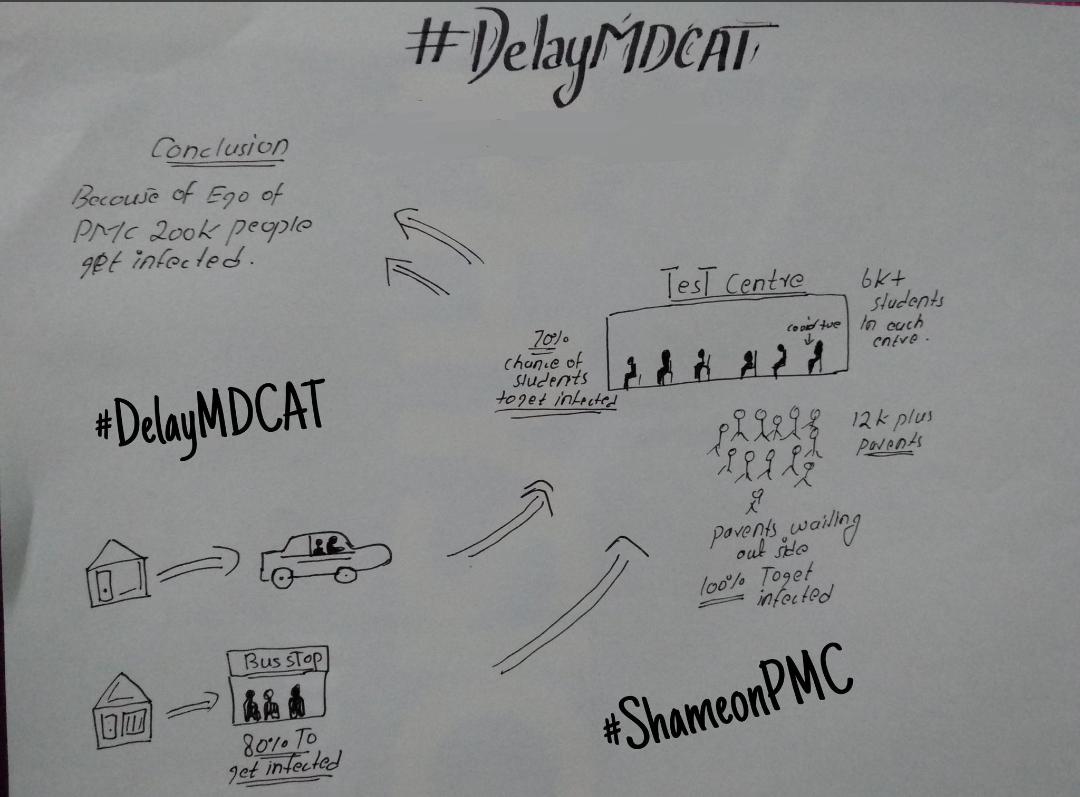 #DelayMDCAT
Conclusion
Because of Ego of
PMC 200K people
get infected.
Test Centre
6K+
students
In each
centre.
covid +ve
70%
chance of
students
to get infected
#DelayMDCAT
12K plus
parents
parents waiting
out side
100% To get
infected
Bus stop
80% To
get infected
#ShameonPMC